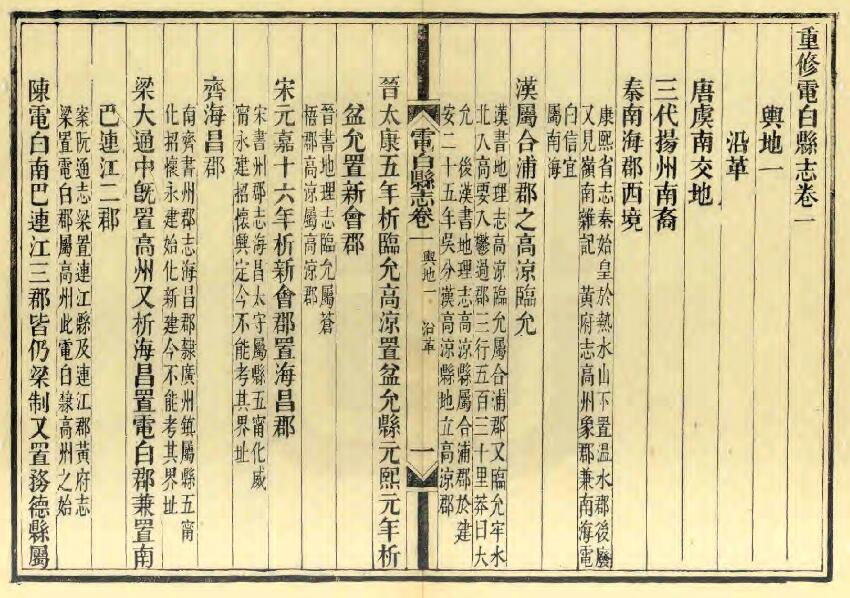 重修電白縣志卷一
輿地一
沿革
唐虞南交地
三代揚州南裔
秦南海郡西境
康熙省志秦始皇於熱水山下置溫水郡後廢
又見嶺南雜記　黃府志高州象郡兼南海電
白信宜
屬南海
漢屬合浦郡之高涼臨允
漢書地理志高涼臨允屬合浦郡又臨允牢水
北入高要入鬱過郡三行五百三十里莽曰大
允　後漢書地理志高涼縣屬合浦郡於建
安二十五年吳分漢高涼縣地立高涼郡
電白縣志卷一　輿地一　沿革　一
晉太康五年析臨允高涼置盆允縣元熙元年析
盆允置新會郡
晉書地理志臨允屬蒼
梧郡高涼屬高涼郡
宋元嘉十六年析新會郡置海昌郡
宋書州郡志海昌太守屬縣五甯化威
甯永建招懷興定今不能考其界址
齊海昌郡
南齊書州郡志海昌郡隸廣州鎮屬縣五甯
化招懷永建始化新建今不能考其界址
梁大通中旣置高州又析海昌置電白郡兼置南
巴連江二郡
案阮通志梁置連江縣及連江郡黃府志
梁置電白郡屬高州此電白隸高州之始
陳電白南巴連江三郡皆仍梁制又置務德縣屬